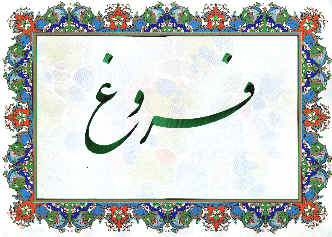 فروغ